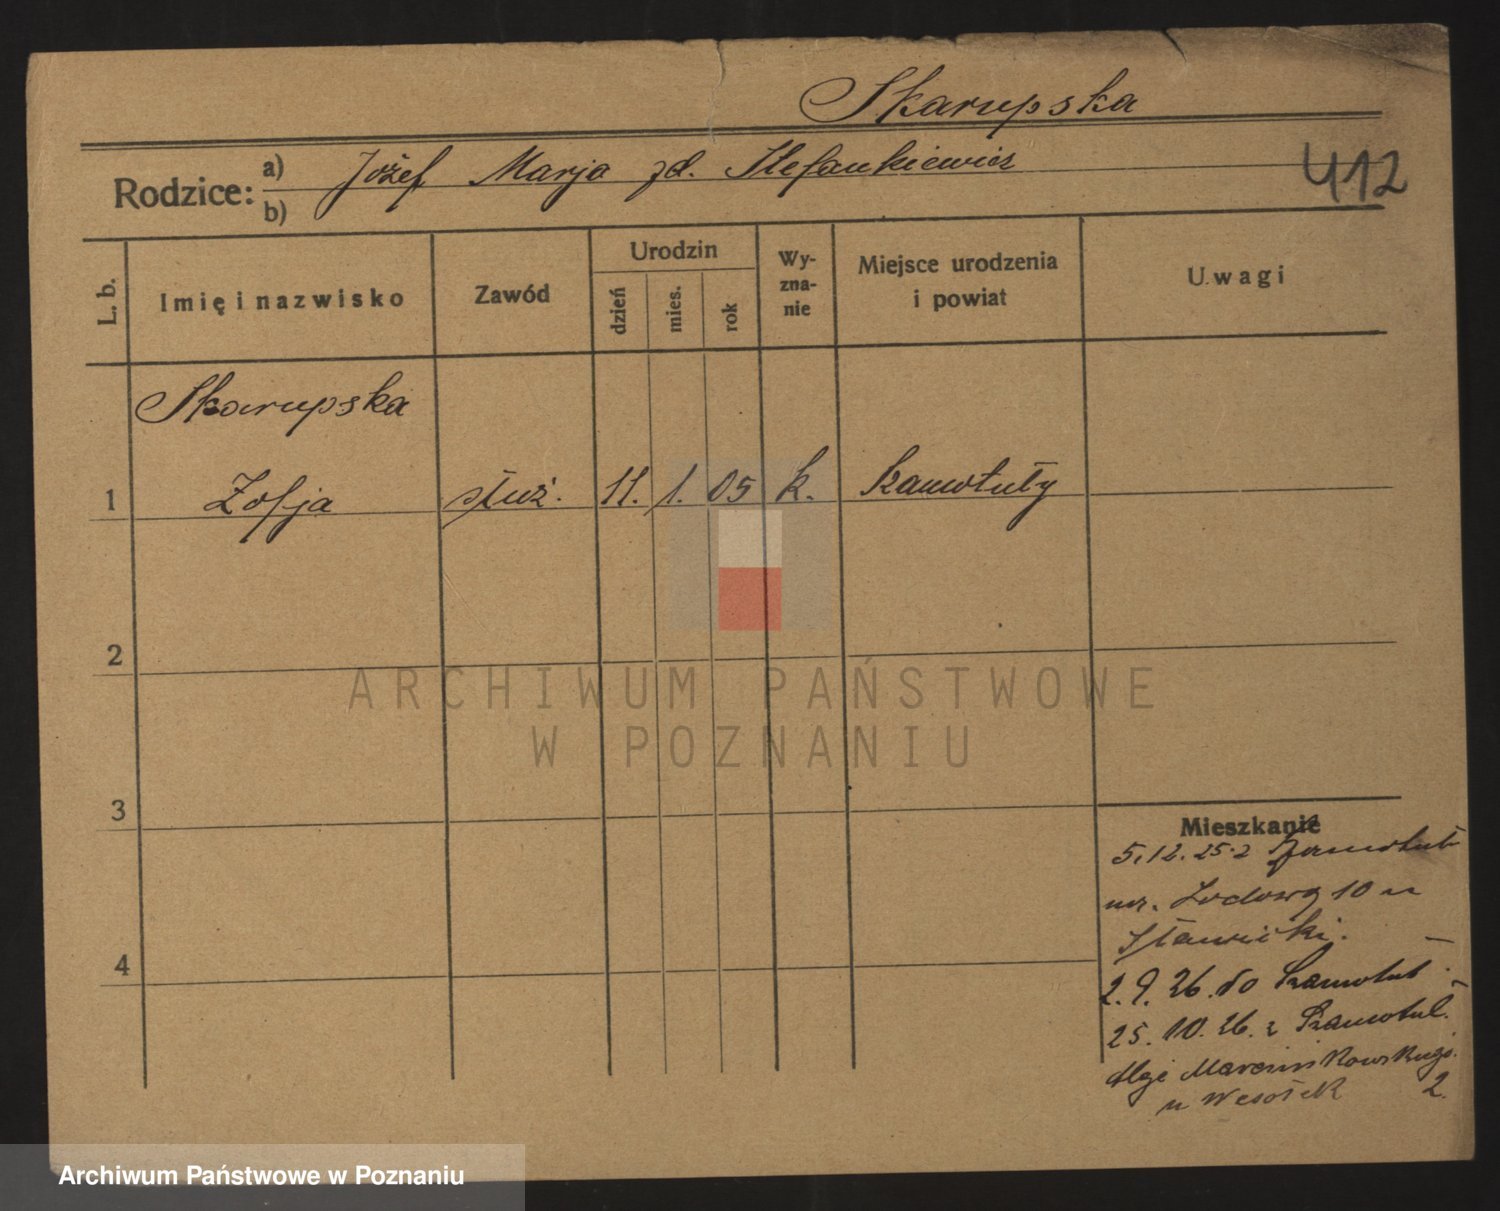 Skarupska
Rodzice: a) Józef Marja zd. Stefankiewicz
b)
412
L. b.
Imię i nazwisko
Zawód
Urodzin
dzień
mies.
rok
Wy-
zna-
nie
Miejsce urodzenia
i powiat
Uwagi
Skarupska
1 Zofja służ. 11. 1. 05 k. Szamotuły
2
3
4
Mieszkanie
5.12.25 z Szamotuł
10 u
Sławicki.
2.9.26. do Szamotuł
25.10.26. z Szamotuł.
Aleje Marcinkowskiego. 2.
u Wesołek
ARCHIWUM PAŃSTWOWE
W POZNANIU
Archiwum Państwowe w Poznaniu